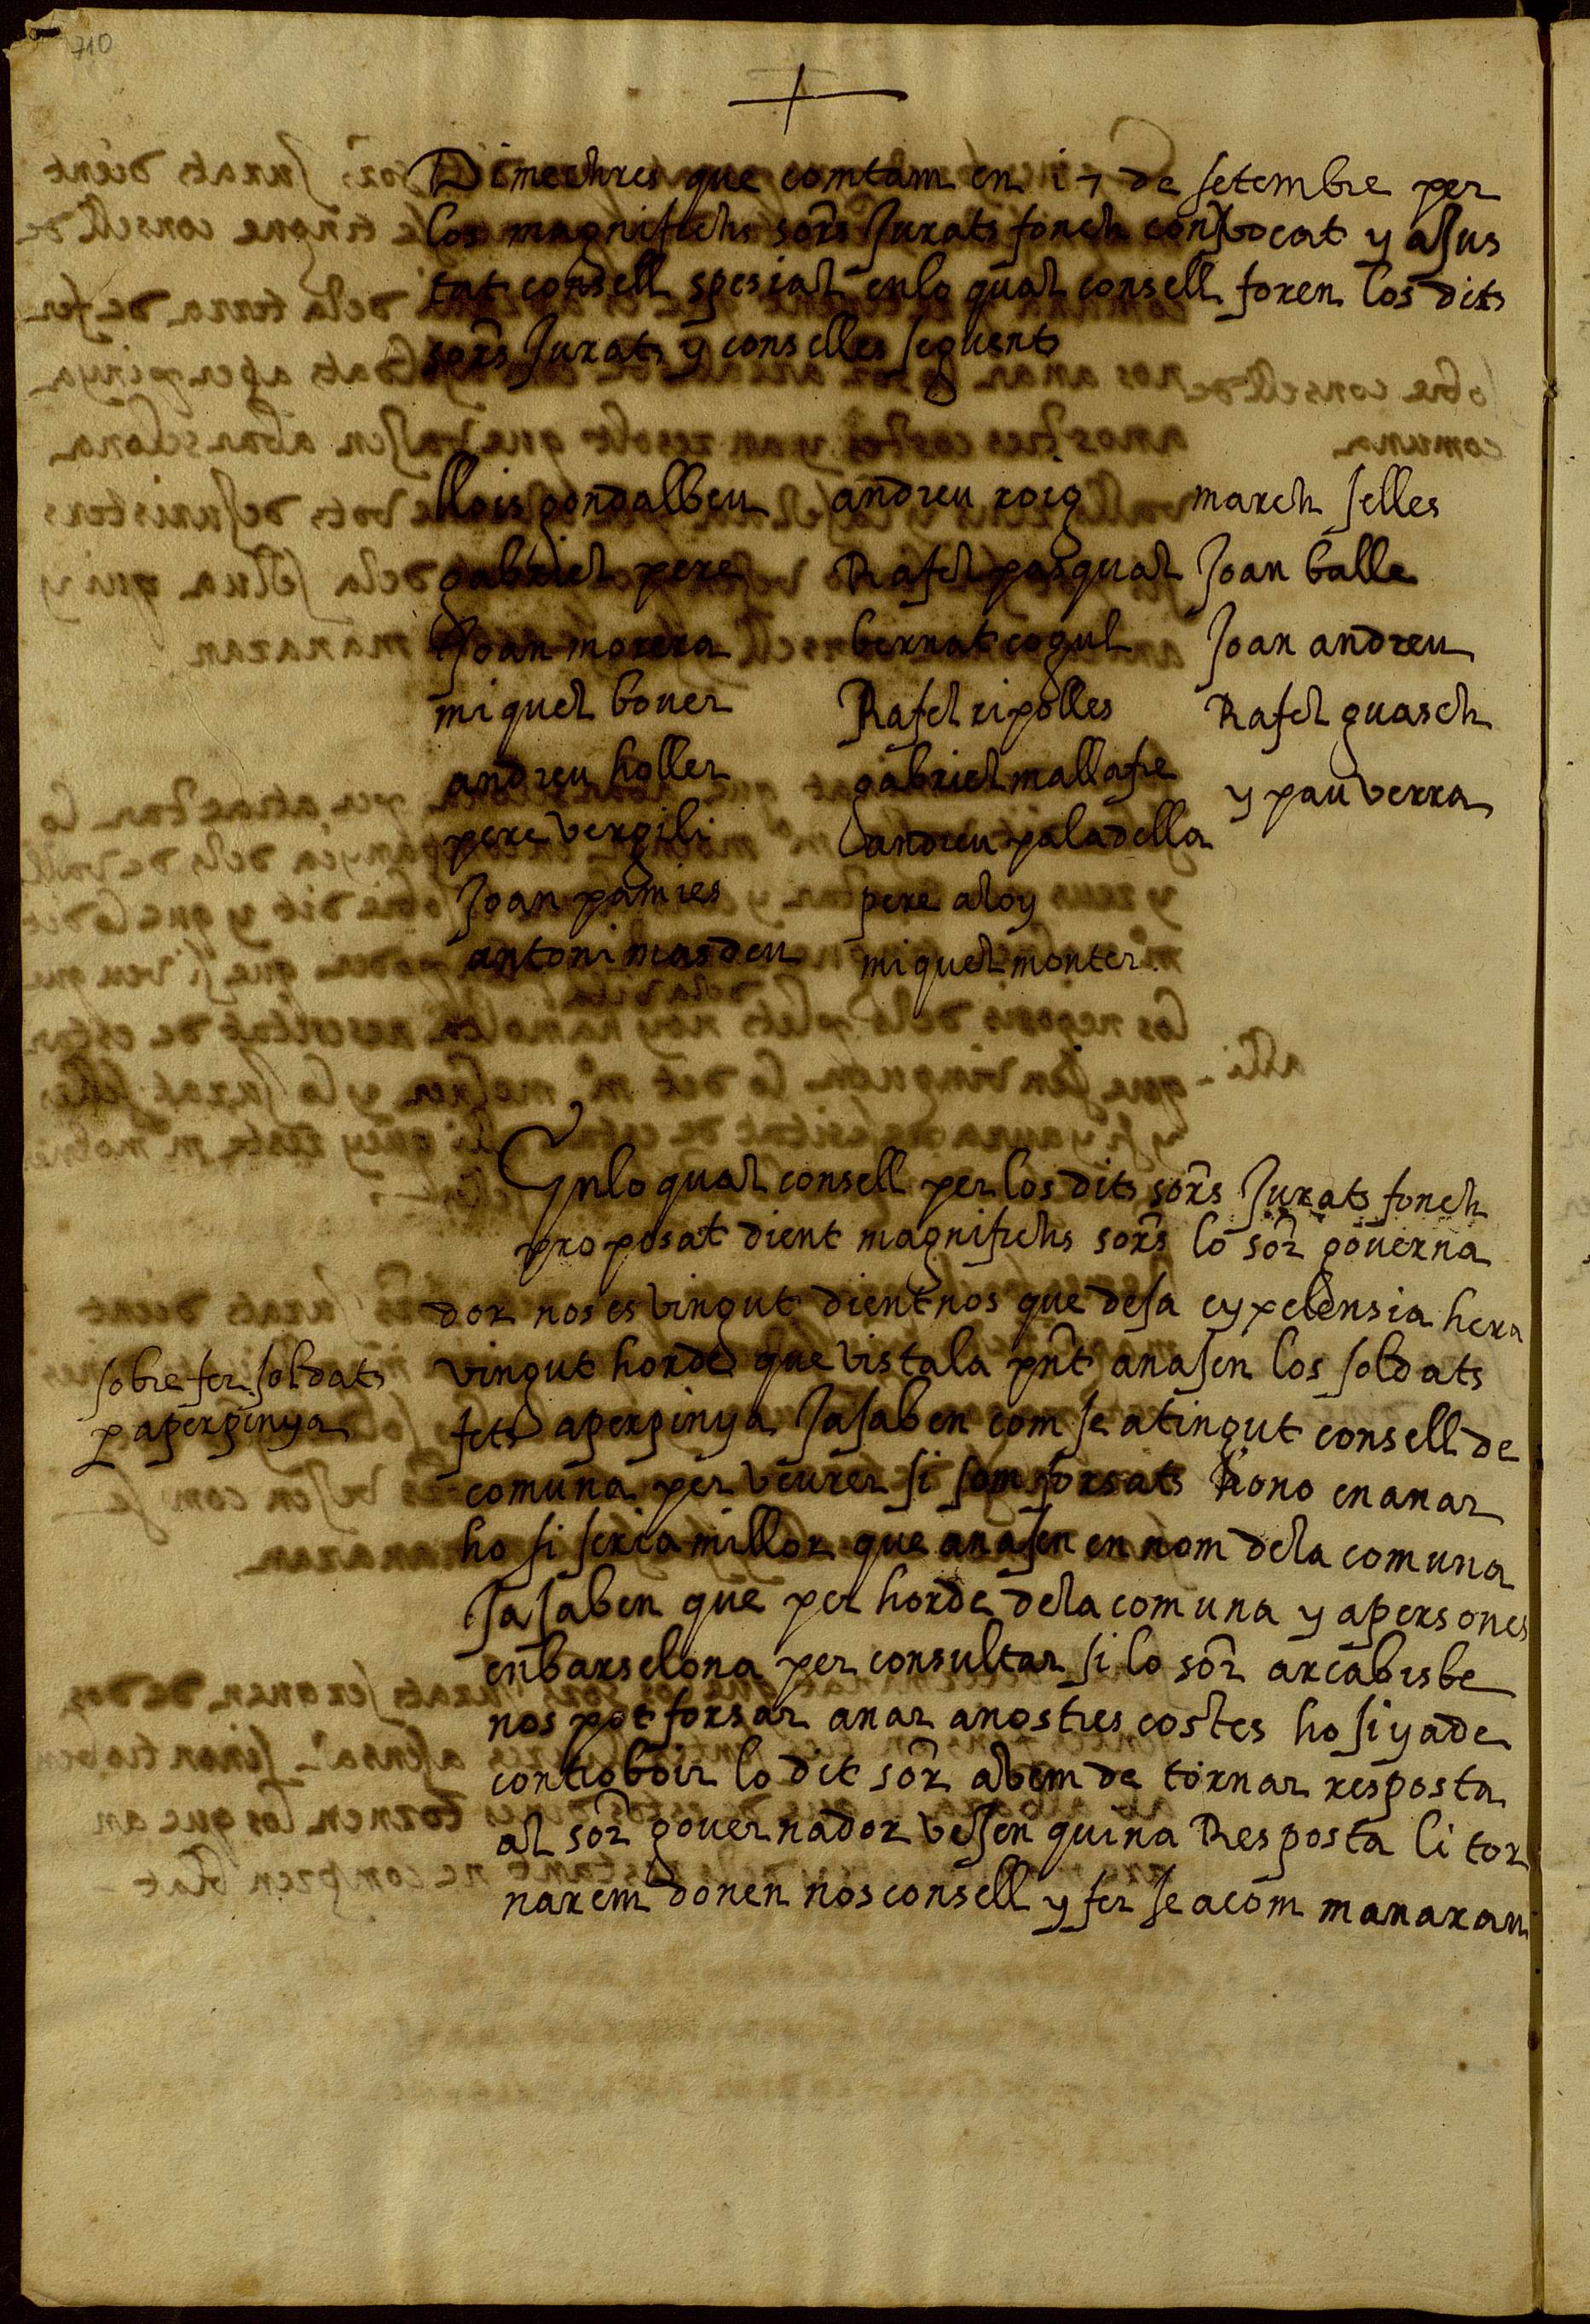 710
Dimechres que comtam en i7 de setembre per
los magnifichs sors Jurats fonch convocat y ajus
tat consell spesial enlo qual consell foren los dits
sors Jurats y conselles seguents
llois gondalbeu andreu roig march selles
gabriel pere Rafel pasqual Joan balle
Joan morera bernat cogul Joan andreu
miquel bover Rafel ripolles Rafel guasch
andreu holler gabriel mallafre y pau verra
pere vergili andreu paladella
Joan pamies pere aloy
antoni masdeu miquel monter
Enlo qual consell per los dits sors Jurats fonch
proposat dient magnifichs sors lo sor governa
dor nos es vingut dient nos que de sa eypelensia hera
sobre fer soldats
p a perpinya
vingut horde que vista la pnt anasen los soldats
fets a perpinya Ja saben com se a tingut consell de
comuna per veurer si som forsats ho no en anar
ho si seria millor que anasen en nom dela comuna
Ja saben que per horde dela comuna y a persones
en barselona per consultar si lo sor arcabisbe
nos pot forsar anar a nostres costes ho si y a de
controboir lo dit sor abem de tornar resposta
al sor governador vejen quina Resposta li tor
narem donen nos consell y fer se a com manaran